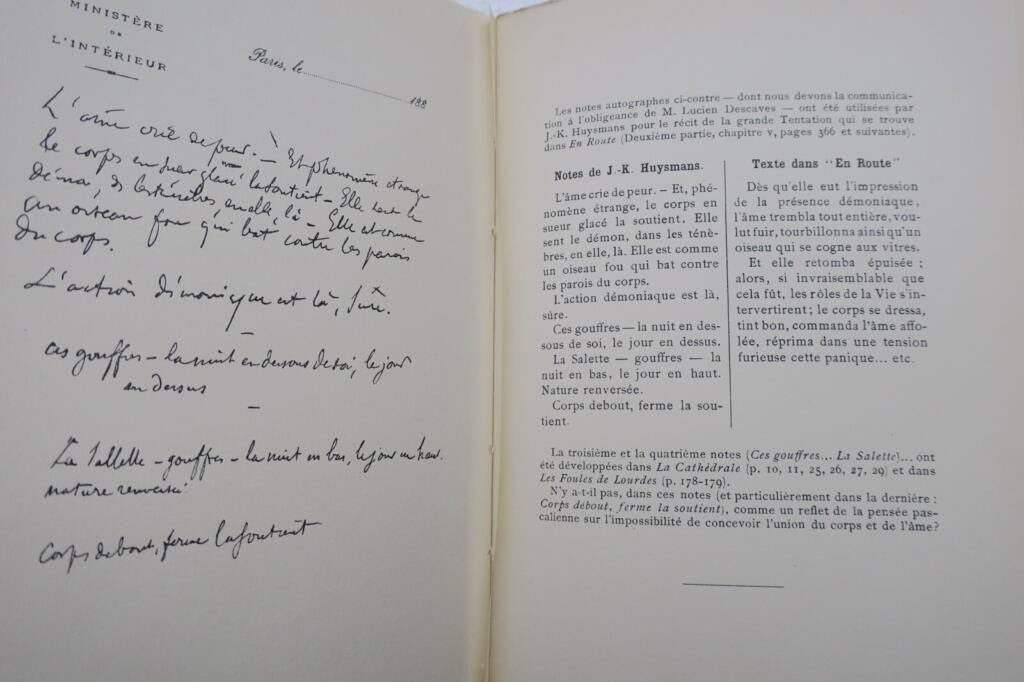 MINISTÈRE
DE
L'INTÉRIEUR
Paris, le
188
L'âme crie de peur. — Et, phénomène étrange
le corps en sueur glacé la soutient — Elle sent le
démon, ds les ténèbres, en elle, là — Elle est comme
un oiseau fou qui bat contre les parois
du corps.
L'action démoniaque est là, sûre.
—
Ces gouffres — la nuit en dessous de soi, le jour
en dessus
—
La Sallette — gouffres — la nuit en bas, le jour en haut.
nature renversée.
Corps debout, ferme la soutient
Les notes autographes ci-contre — dont nous devons la communica-
tion à l'obligeance de M. Lucien Descaves — ont été utilisées par
J.-K. Huysmans pour le récit de la grande Tentation qui se trouve
dans En Route (Deuxième partie, chapitre v, pages 366 et suivantes).
Notes de J.-K. Huysmans.
L'âme crie de peur. — Et, phé-
nomène étrange, le corps en
sueur glacé la soutient. Elle
sent le démon, dans les ténè-
bres, en elle, là. Elle est comme
un oiseau fou qui bat contre
les parois du corps.
L'action démoniaque est là,
sûre.
Ces gouffres — la nuit en des-
sous de soi, le jour en dessus.
La Salette — gouffres — la
nuit en bas, le jour en haut.
Nature renversée.
Corps debout, ferme la sou-
tient.
Texte dans "En Route"
Dès qu'elle eut l'impression
de la présence démoniaque,
l'âme trembla tout entière, vou-
lut fuir, tourbillonna ainsi qu'un
oiseau qui se cogne aux vitres.
Et elle retomba épuisée ;
alors, si invraisemblable que
cela fût, les rôles de la Vie s'in-
tervertirent ; le corps se dressa,
tint bon, commanda l'âme affo-
lée, réprima dans une tension
furieuse cette panique... etc.
La troisième et la quatrième notes (Ces gouffres... La Salette)... ont
été développées dans La Cathédrale (p. 10, 11, 25, 26, 27, 29) et dans
Les Foules de Lourdes (p. 178-179).
N'y a-t-il pas, dans ces notes (et particulièrement dans la dernière :
Corps debout, ferme la soutient), comme un reflet de la pensée pas-
calienne sur l'impossibilité de concevoir l'union du corps et de l'âme?